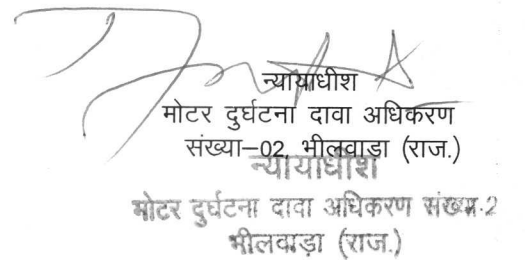 न्यायाधीश
मोटर दुर्घटना दावा अधिकरण
संख्या–02, भीलवाड़ा (राज.)
न्यायाधीश
मोटर दुर्घटना दावा अधिकरण संख्या-2
भीलवाड़ा (राज.)